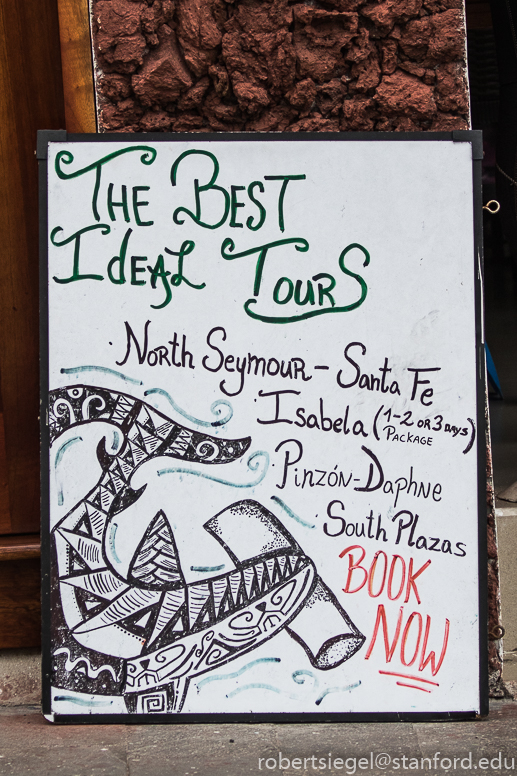 THE BEST
IdEAL TOURS
·North Seymour - Santa Fe
·Isabela (1-2 OR 3 DAYS)
PACKAGE
·Pinzón-Daphne
·South Plazas
BOOK
NOW
robertsiegel@stanford.edu